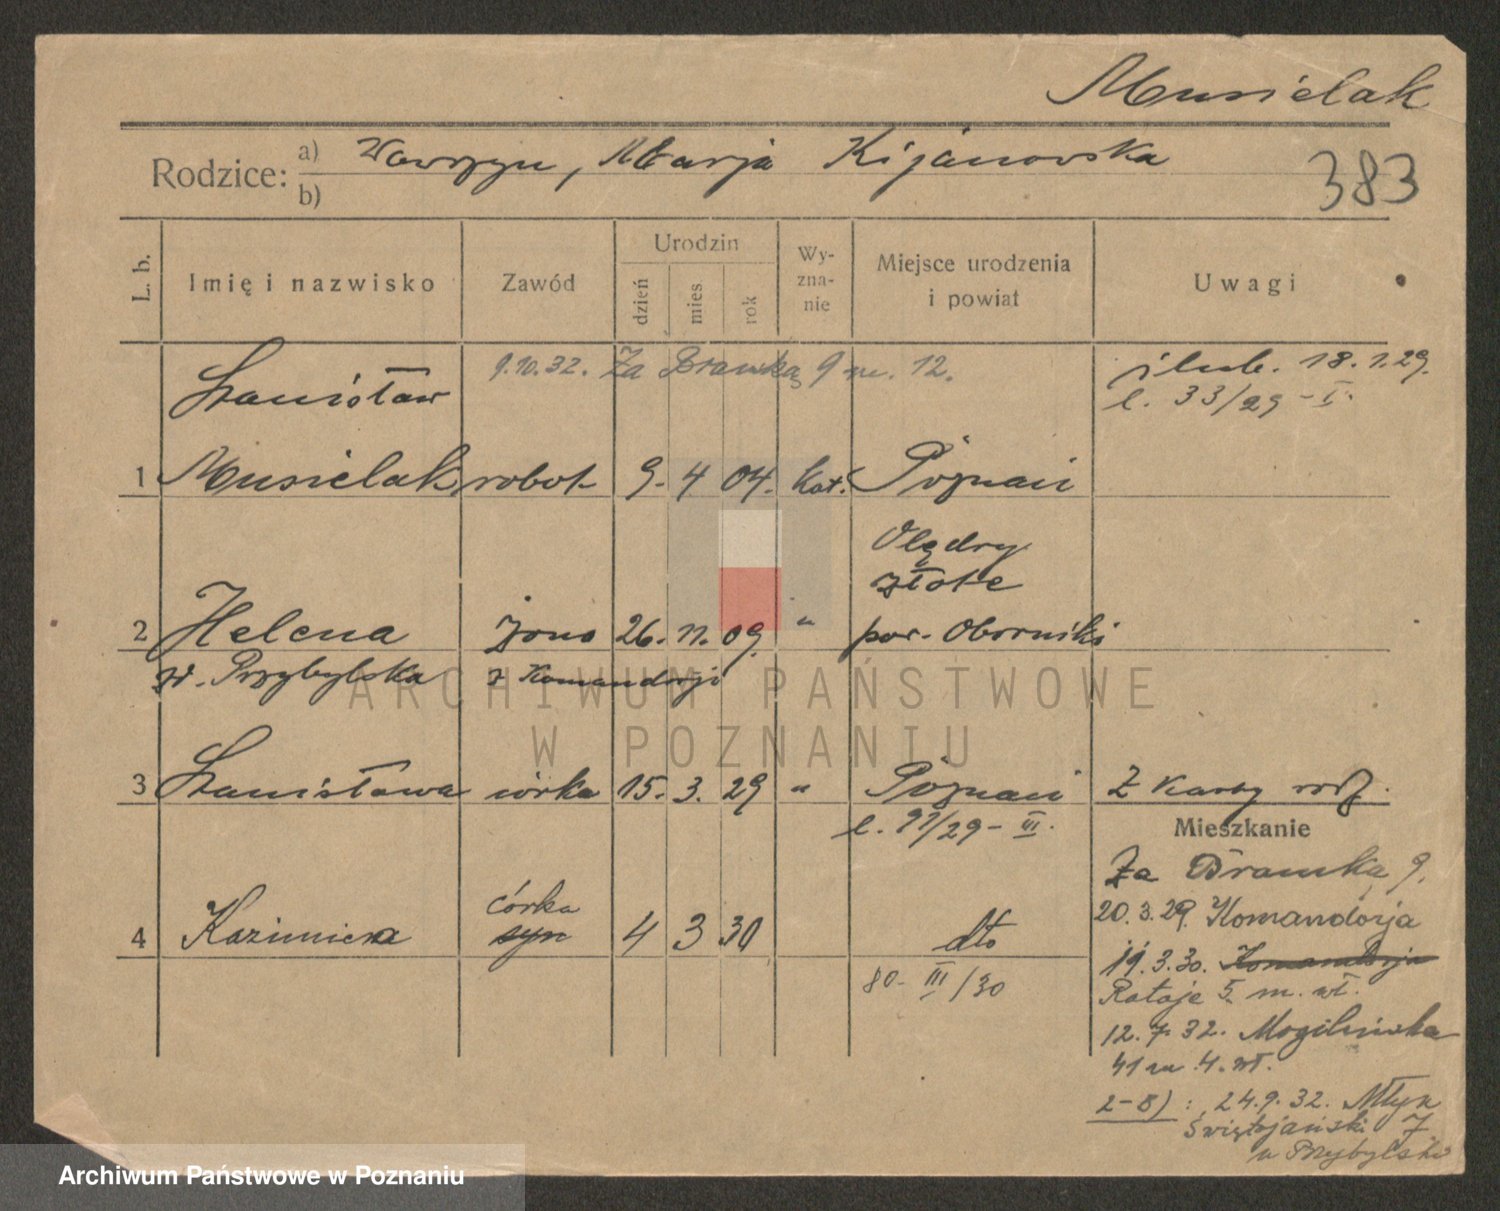 Musielak
Rodzice: a) Wawrzyn, Marja Kijanowska
b)
383
L. b. Imię i nazwisko Zawód Urodzin dzień mies rok Wy-zna-nie Miejsce urodzenia i powiat Uwagi
9.10.32. Za Bramką 9 m. 12.
ślub. 18.1.29.
l. 33/29 - I.
Stanisław
1 Musielak robot. 9. 4 04. kat. Poznań
Olędry
złote
2 Helena żona 26. 11. 09. " pow. Oborniki
zd. Przybylska z Komandorji
3 Stanisława córka 15. 3. 29 " Poznań Z karty rodz.
l. 91/29 - III.
Mieszkanie
Za Bramką 9.
20.3.29. Komandorja
córka
4 Kazimiera syn 4 3 30 dto
80 - III/30
19.3.30. Komandorja
Rataje 5. m. wł.
12.7.32. Mogilnicka
41 m 4. wł.
2-8) : 24.9.32. Młyn
Świętojański 7
u Przybylski
ARCHIWUM PAŃSTWOWE
W POZNANIU
Archiwum Państwowe w Poznaniu